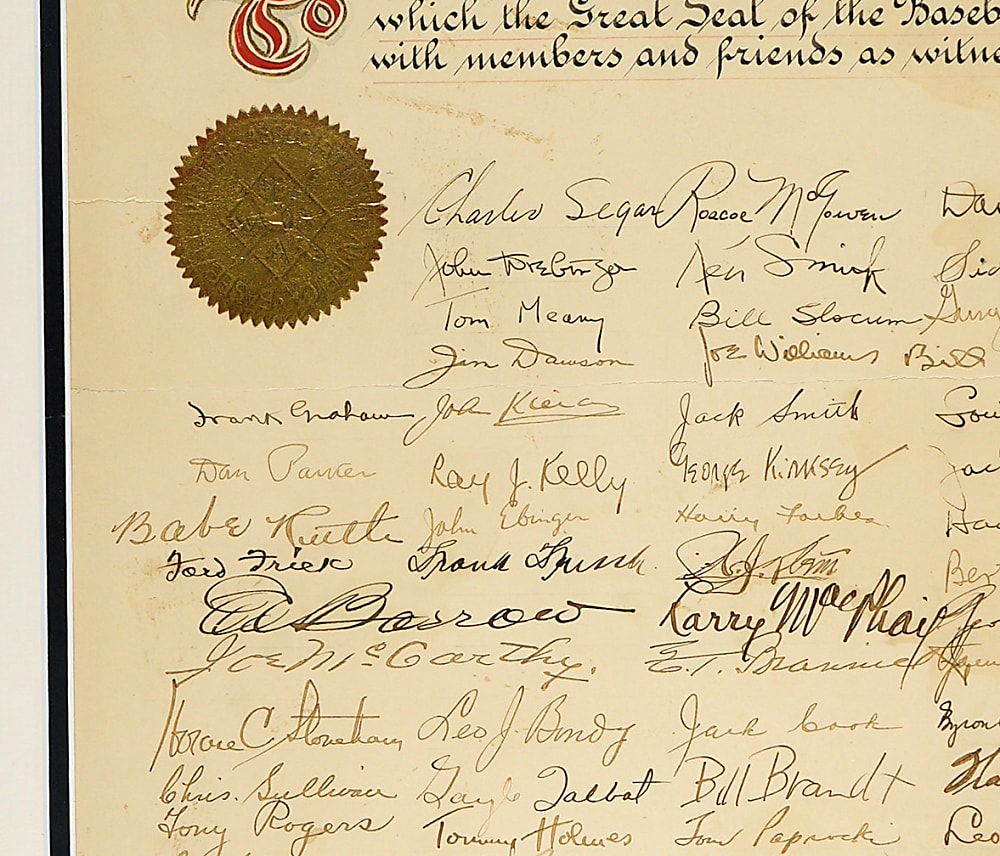 To which the Great Seal of the Baseb
with members and friends as witne
Charles Segar Roscoe McGowen Da
John Drebinger Ken Smith Sid
Tom Meany Bill Slocum
Jim Dawson Joe Williams Bill
Frank Graham John Kieran Jack Smith Lou
Dan Parker Ray J. Kelly George Kirksey Jac
Babe Ruth John Ebinger Harry Forbes
Ford Frick Frank Frisch Ber
Ed Barrow Larry MacPhail
Joe McCarthy E. T. Brannick
Horace C Stoneham Leo J. Bondy Jack Cook Byron
Chris. Sullivan Gayle Talbot Bill Brandt
Tony Rogers Tommy Holmes Tom Paprocki Leo